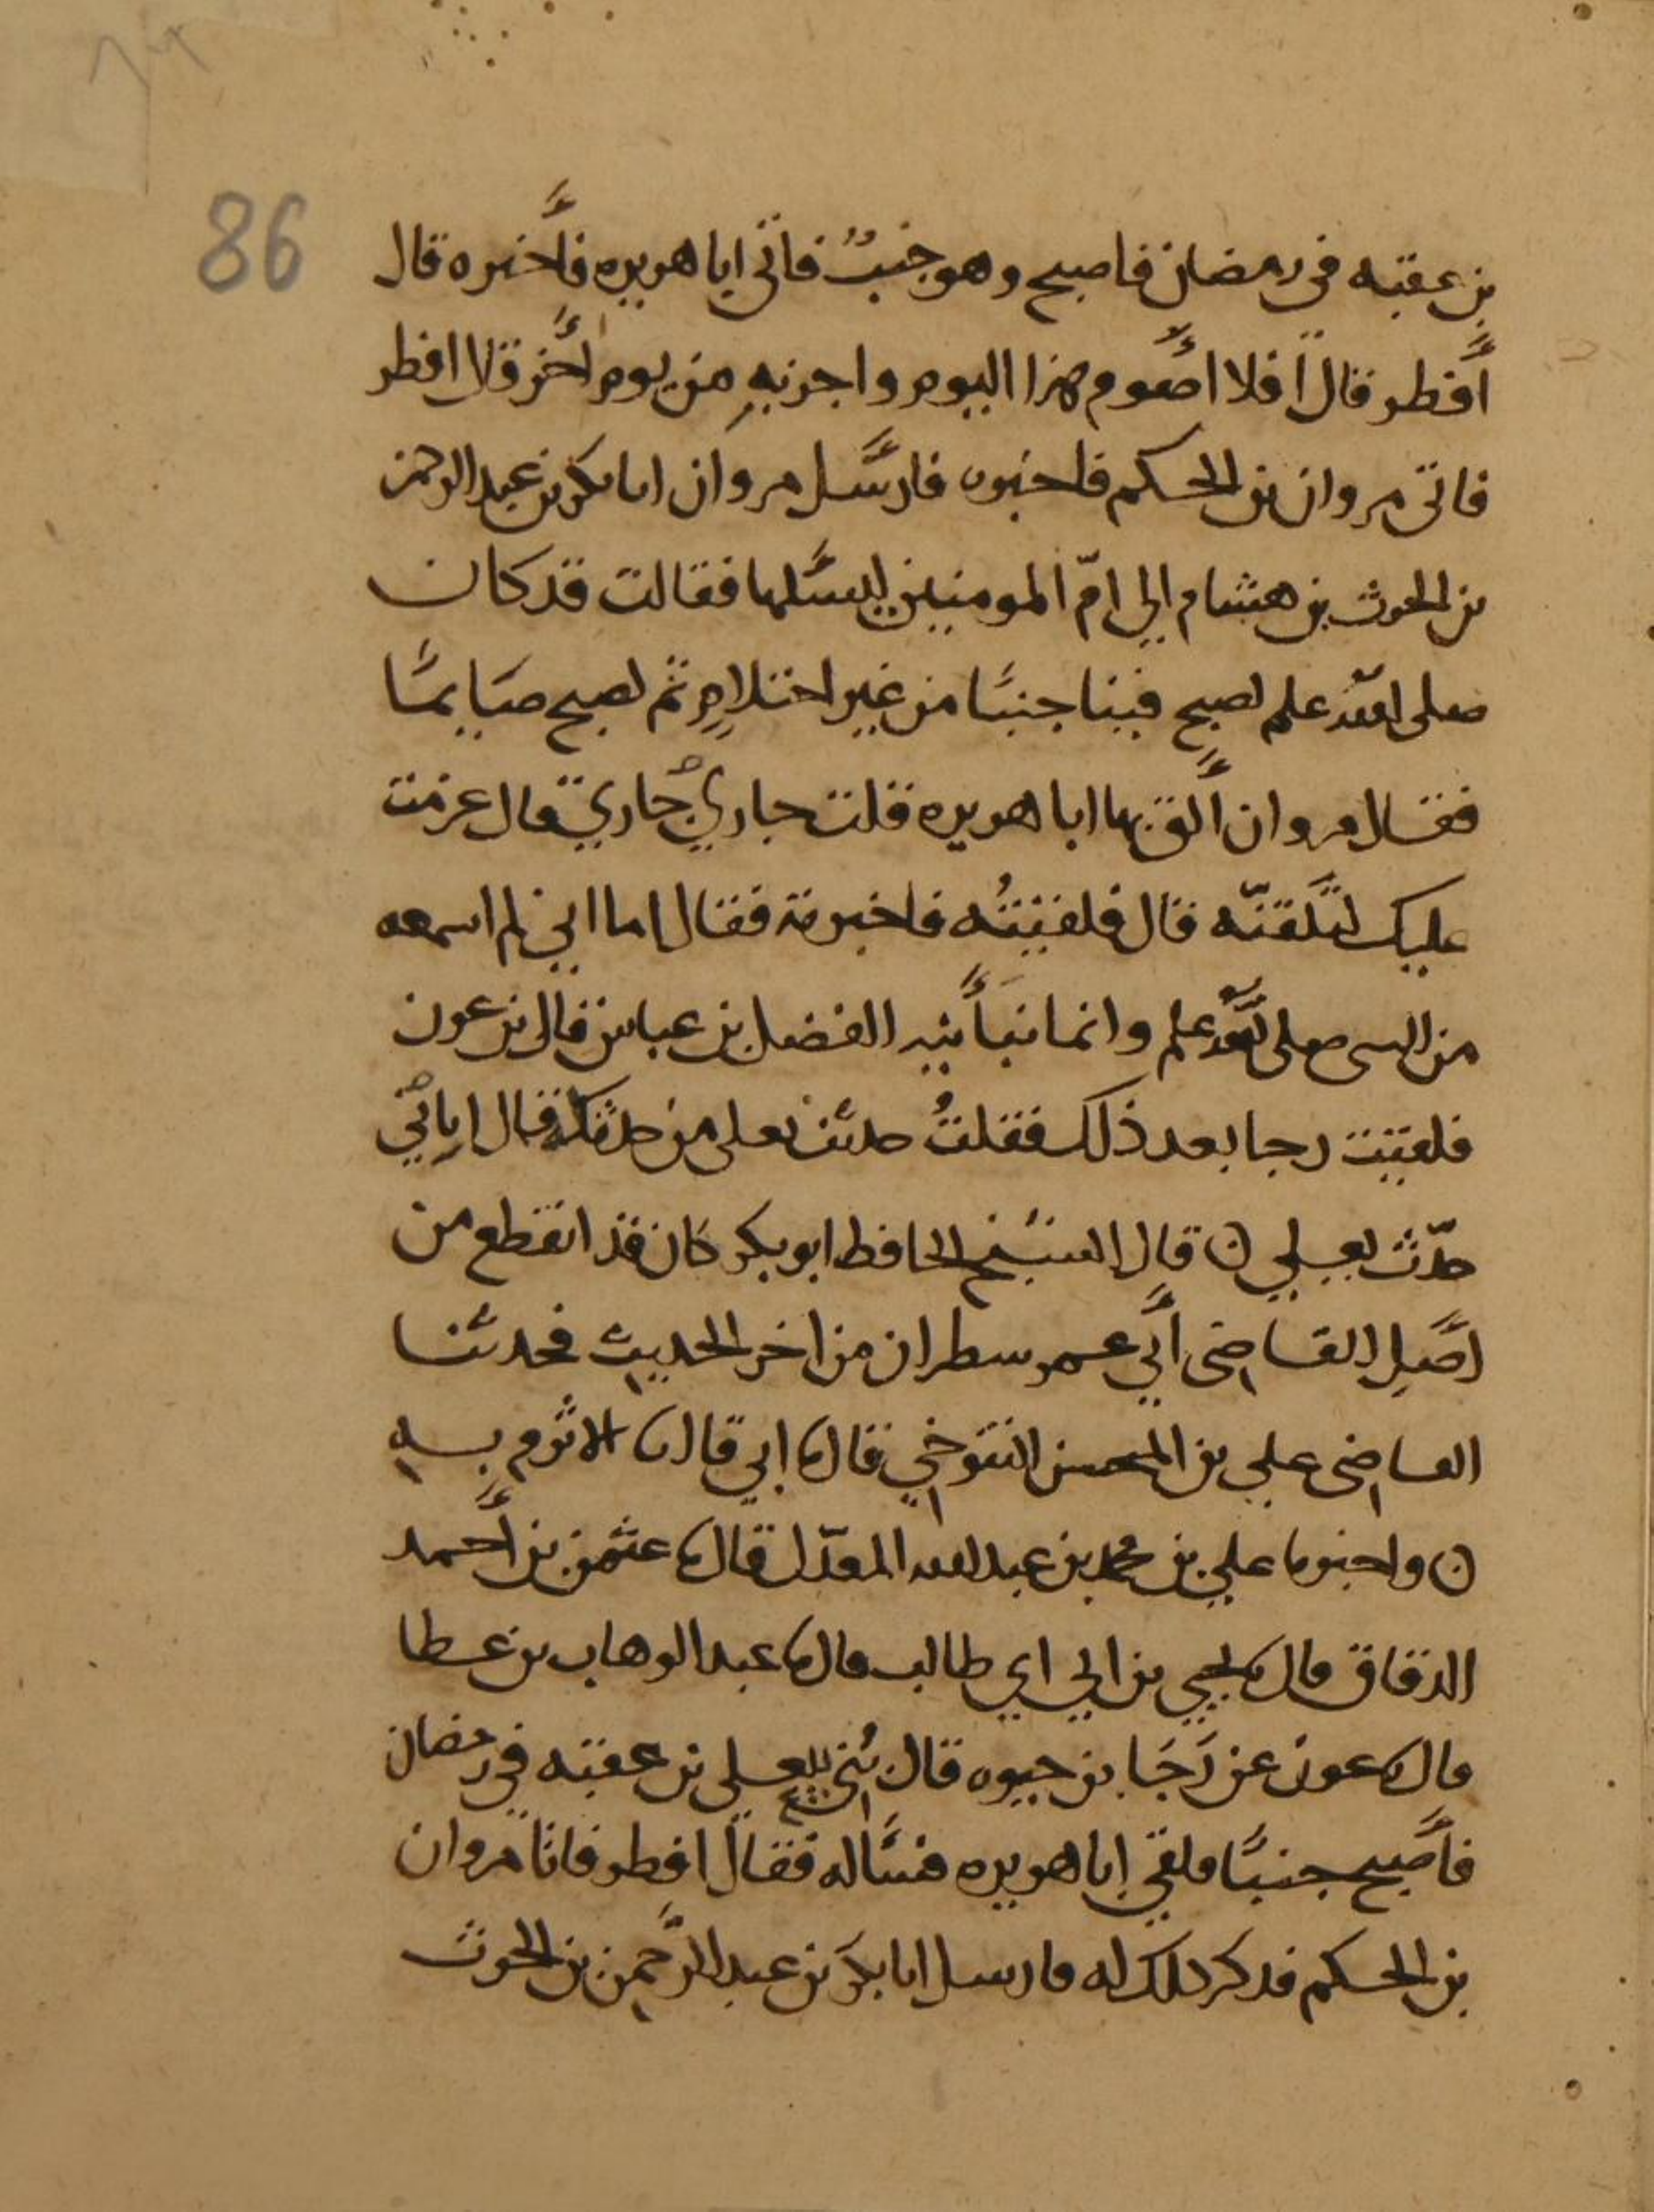 86
بن عقبه في رمضان فاصبح وهو جنبٌ فاتى ابا هريره فأخبره قال
أفطر قال افلا اصوم هذا اليوم واجزيه من يوم اخر قال افطر
فاتى مروان بن الحكم فاخبره فارسل مروان ابا بكر بن عبد الرحمن
بن الحرث بن هشام الي امّ المومنين ليسلها فقالت قد كان
صلى الله علم يصبح فينا جنبًا من غير احتلامٍ ثم يصبح صايمًا
فقال مروان ألق بها ابا هريره فقلت جاري جاري قال عزمت
عليك لتلقنّه قال فلقيتُه فاخبرته فقال اما اني لم اسمعه
من النبي صلى الله علم وانما نبأنيه الفضل بن عباس قال بن عون
فلقيت رجا بعد ذلك فقلتُ حديث يعلى من حدثكه قال اياي
حدّث يعلي ن قال الشيخ الحافظ ابو بكر كان قد انقطع من
اصل القاضي أبي عمر سطران من اخر الحديث فحدثنا
القاضي علي بن المحسن التنوخي قال نا ابي قال نا الاثرم بـه
ن واخبرنا علي بن محمد بن عبد الله المعدّل قال نا عثمن بن أحمد
الدقاق قال نا يحيي بن ابي ابي طالب قال نا عبد الوهاب بن عطا
قال نا عون عن رَجَا بن حيوه قال يعلى بن عقبه في رمضان
فأصبح جنبًا فلقي ابا هريره فسأله فقال افطر فاتا مروان
بن الحكم فدكر دلك له فارسل ابا بكر بن عبد الرَّحمن بن الحرث